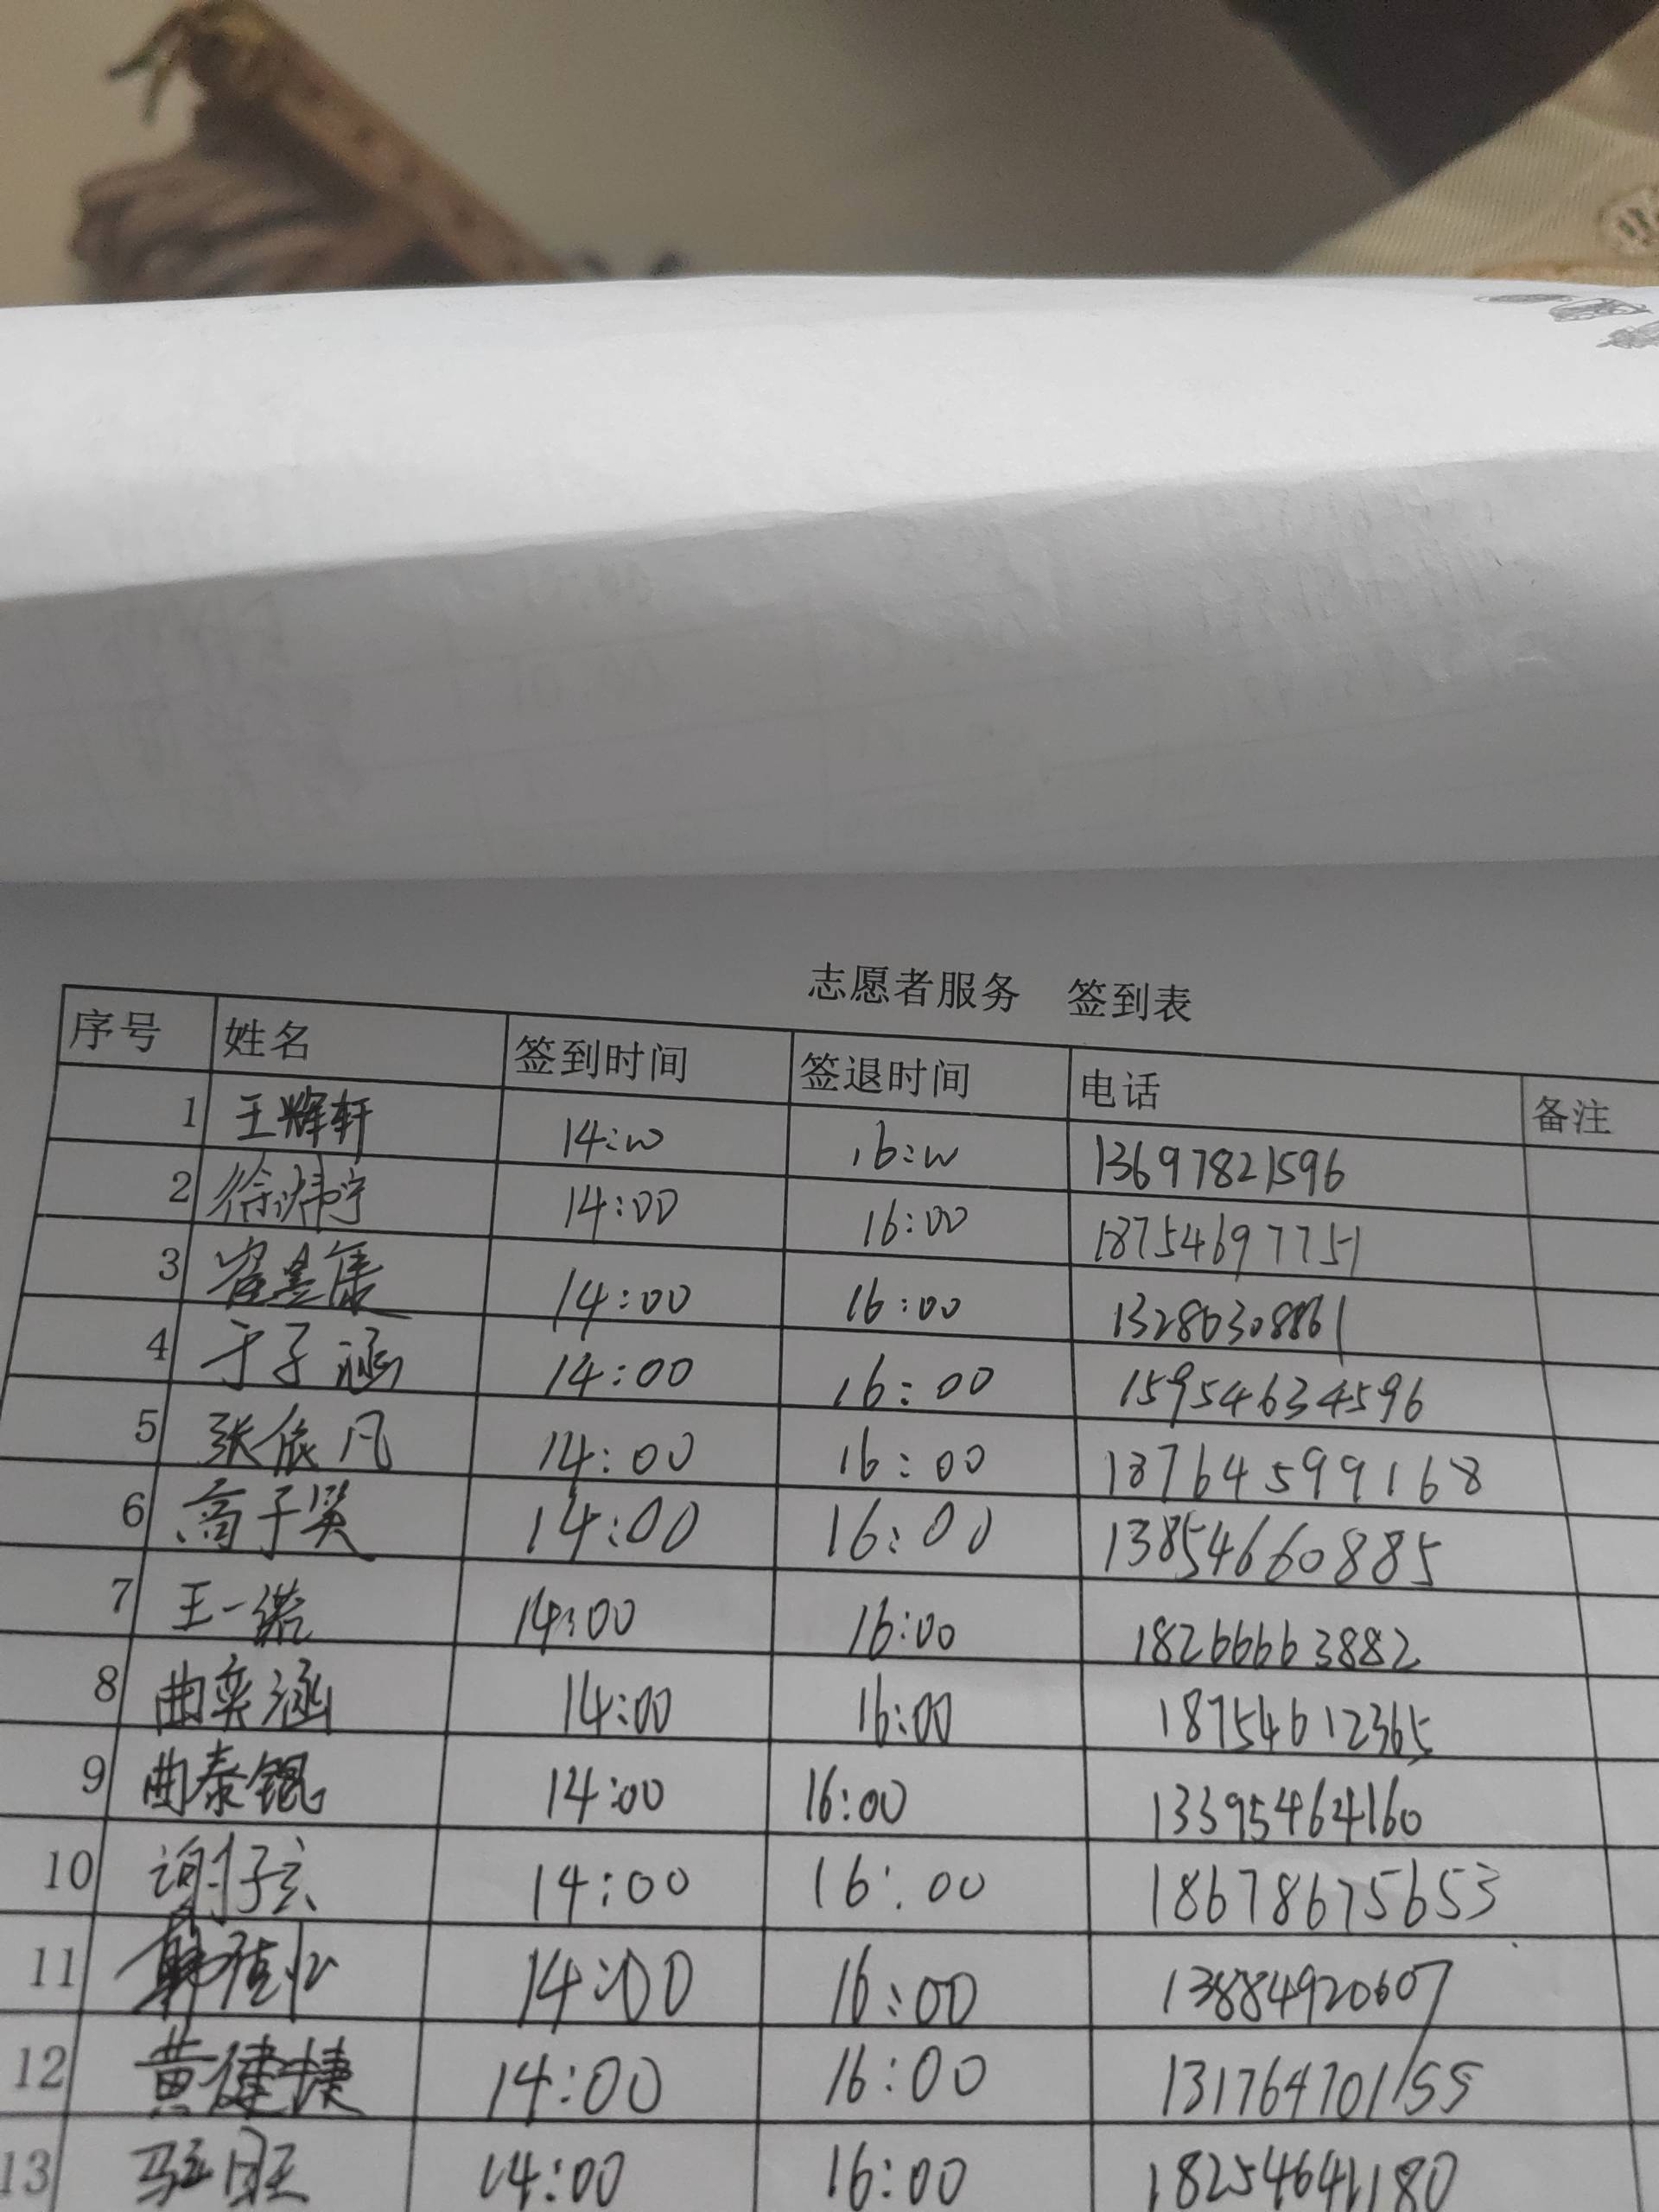 志愿者服务 签到表
序号 姓名 签到时间 签退时间 电话 备注
1 王辉轩 14:00 16:00 13697821596
2 徐炜宁 14:00 16:00 18754697751
3 14:00 16:00 13280308861
4 于子涵 14:00 16:00 15954634596
5 张依凡 14:00 16:00 18764599168
6 商子昊 14:00 16:00 13854660885
7 王一诺 14:00 16:00 18266663882
8 曲奕涵 14:00 16:00 18754612365
9 曲泰锟 14:00 16:00 13395464160
10 谢子玄 14:00 16:00 18678675653
11 14:00 16:00 13884920607
12 黄健捷 14:00 16:00 13176470155
13 14:00 16:00 18254641180